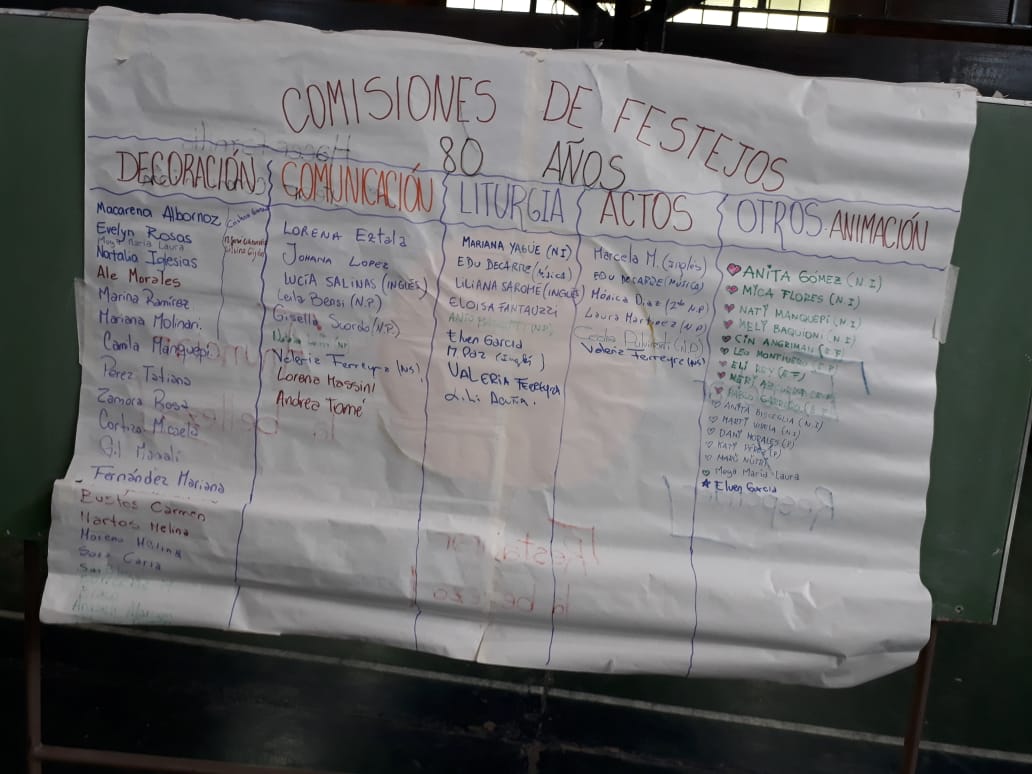 COMISIONES DE FESTEJOS
80 AÑOS
DECORACIÓN
Macarena Albornoz
Evelyn Rosas
Moya María Laura
Natalia Iglesias
Ale Morales
Marina Ramírez
Mariana Molinari.
Camila Manquepi
Pérez Tatiana
Zamora Rosa
Cortizo Micaela
Gil Magali
Fernández Mariana
Bustos Carmen
Martos Melina
Moreno Melina
Sosa Carla
COMUNICACIÓN
LORENA Eztala
Johana Lopez
LUCÍA SALINAS (INGLÉS)
Leila Bensi (N.P.)
Gisella Scordo (N.P.)
Valeria Ferreyra (NS).
Lorena Massini
Andrea Tomé
LITURGIA
MARIANA YAGÜE (NI)
EDU DECARRE (Música)
LILIANA SAROMÉ (INGLÉS)
ELOISA FANTAUZZI
Elven Garcia
M Paz (Inglés)
VALERIA FERREYRA
Lili ACUÑA.
ACTOS
Marcela M. (inglés)
EDU DECARRE (MÚSICA)
Mónica Diaz (2do N.P)
Laura Martinez (N.P)
Cecilia
Valeria Ferreyra (NS)
OTROS: ANIMACIÓN
ANITA GÓMEZ (N.I)
MICA FLORES (N.I)
NATY MANQUEPI (N.I)
MELY BAQUIONI (N.I)
CIN ANGRIMAN (E.F)
LEO
ELI REY (E.F)
MERI
PABLO GARRIDO
ANITA BISCEGLIA (N.I)
MARTI VIDELA (N.I)
DANI MORALES (P)
KATY PÉREZ (P)
MARÚ
Moya María Laura
Elven Garcia